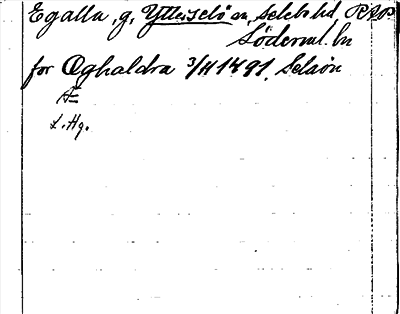 Egalla, g, Ytterselö sn, Selebo hd RAP
Söderml. ln
for Øghaldra 3/4 1491. Selaön
L. Hg.